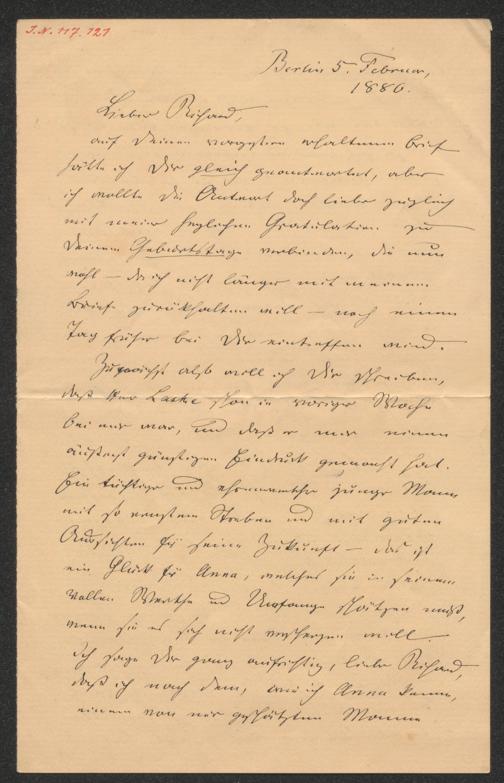 I.N. 117.121
Berlin 5. Februar,
1886.
Lieber Richard,
auf Deinen vorgestern erhaltenen Brief
hätte ich Dir gleich geantwortet, aber
ich wollte die Antwort doch lieber zugleich
mit meiner herzlichen Gratulation zu
Deinem Geburtstage verbinden, die nun
wohl – da ich nicht länger mit meinem
Briefe zurückhalten will – noch einen
Tag früher bei Dir eintreffen wird.
Zunächst also will ich Dir schreiben,
daß Herr schon in voriger Woche
bei uns war, und daß er mir einen
äußerst günstigen Eindruck gemacht hat.
Ein tüchtiger und ehrenwerther junger Mann
mit so ernstem Streben und mit guten
Aussichten für seine Zukunft – das ist
ein Glück für Anna, welches sie in seinem
vollen Werthe und Umfange schätzen muß,
wenn sie es sich nicht verscherzen will.
Ich sage Dir ganz aufrichtig, lieber Richard,
daß ich nach dem, wie ich Anna kenne,
einem von mir geschätzten Manne